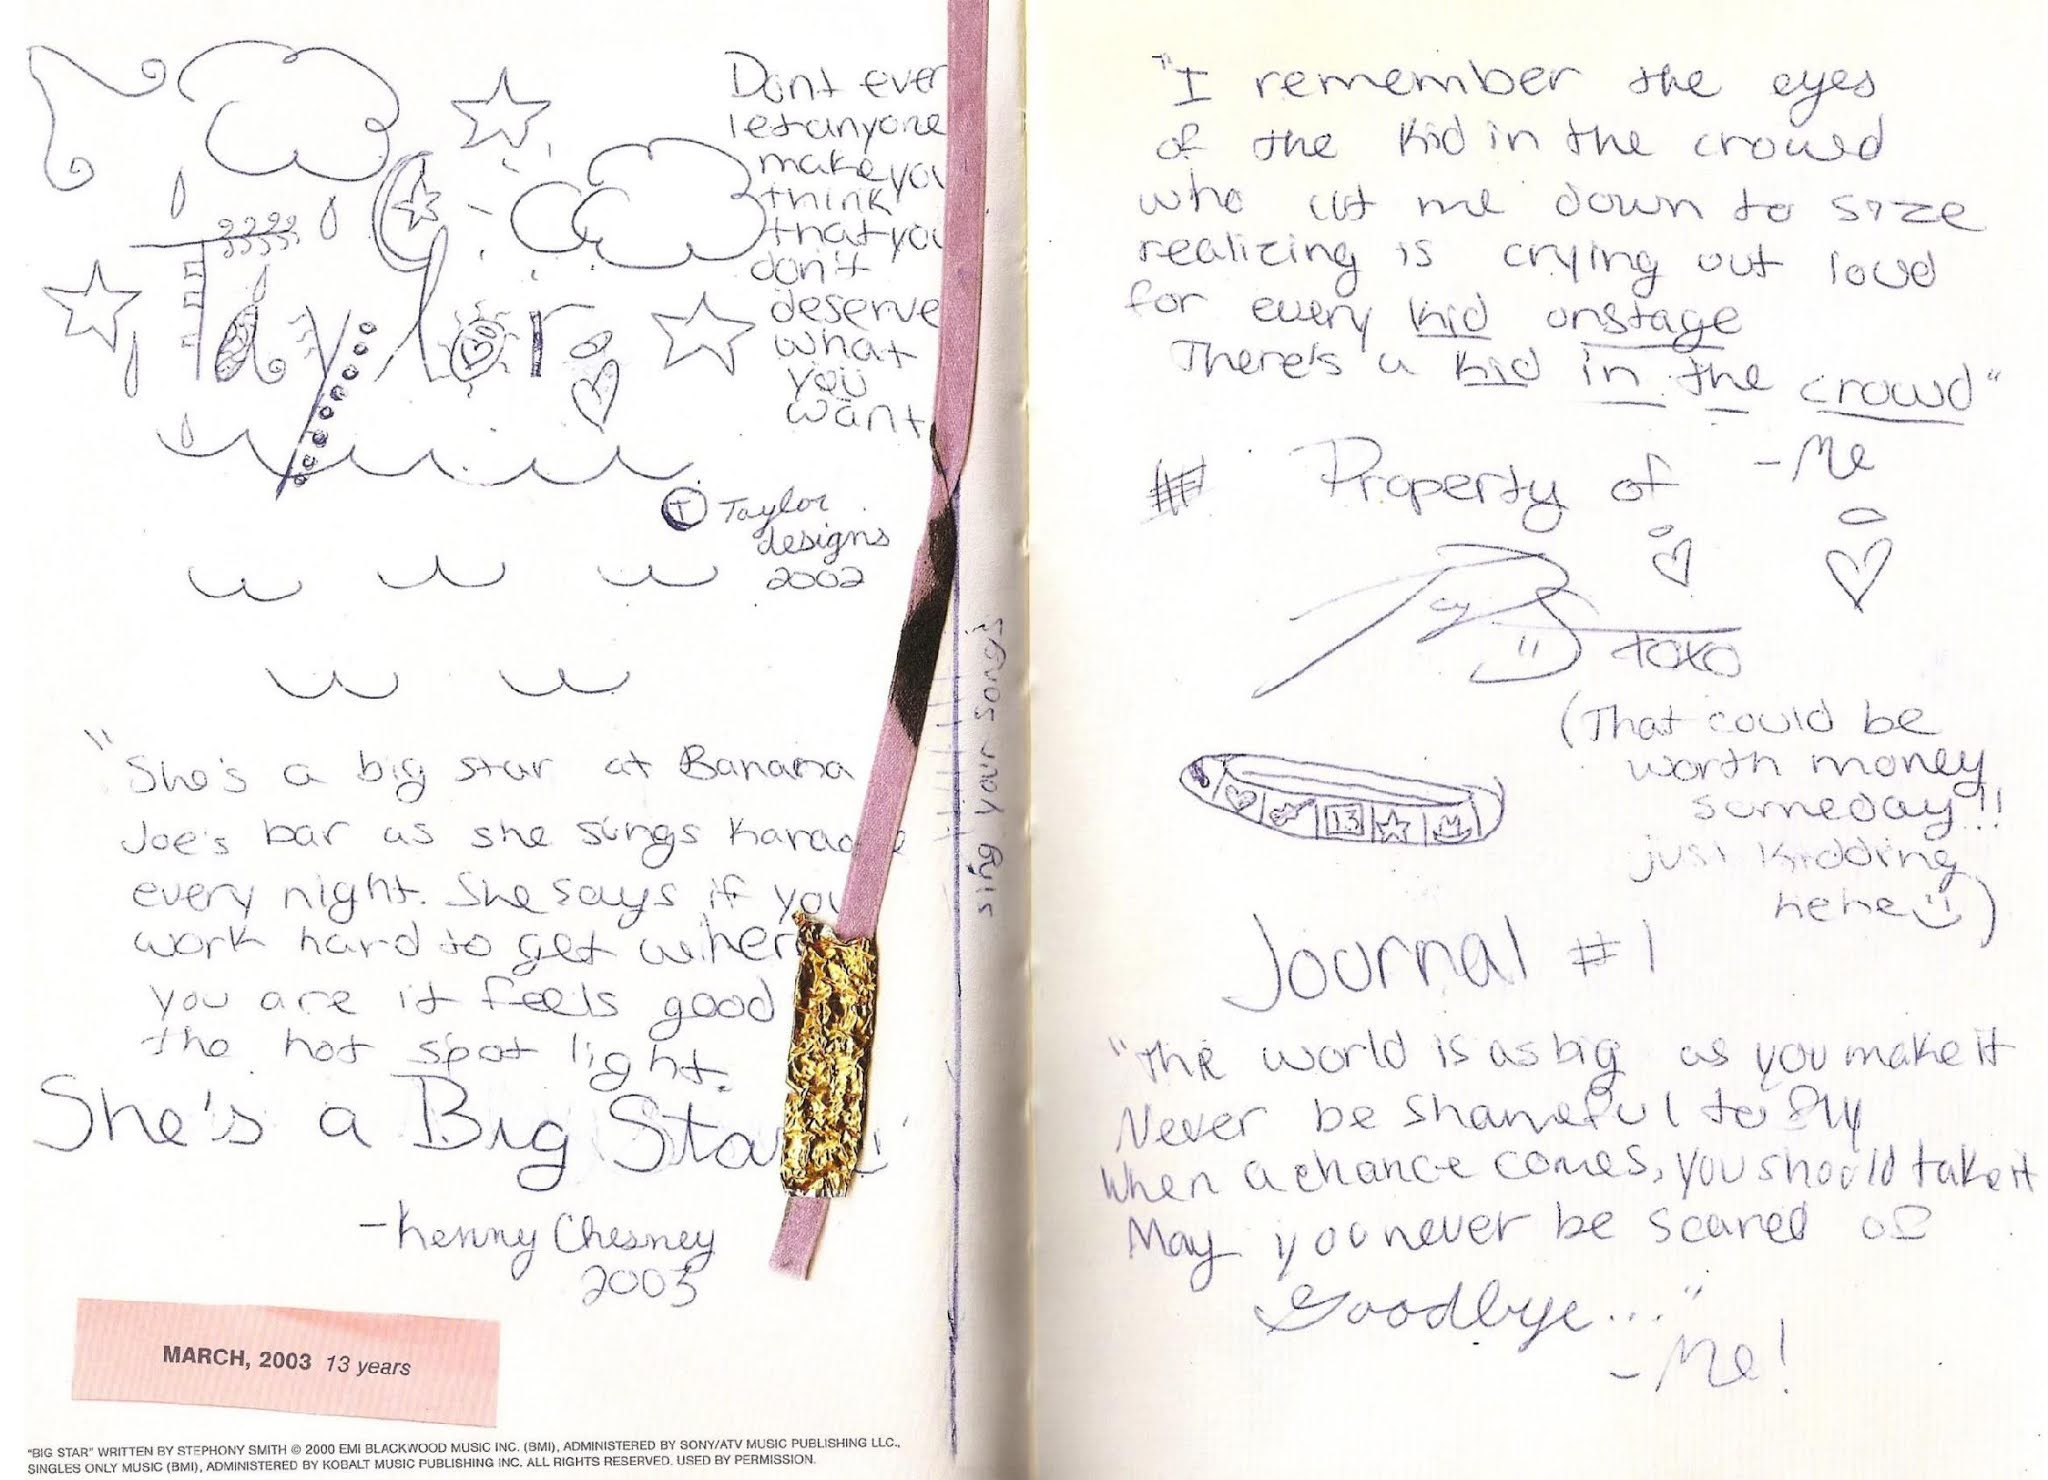 Dont ever
let anyone
make you
think
that you
don't
deserve
what
you
want
Taylor
T Taylor
designs
2002
"She's a big star at Banana
Joe's bar as she sings Karaoke
every night. She says if you
work hard to get where
you are it feels good
the hot spot light.
She's a Big Star
-Kenny Chesney
2003
MARCH, 2003 13 years
"BIG STAR" WRITTEN BY STEPHONY SMITH © 2000 EMI BLACKWOOD MUSIC INC. (BMI), ADMINISTERED BY SONY/ATV MUSIC PUBLISHING LLC.,
SINGLES ONLY MUSIC (BMI), ADMINISTERED BY KOBALT MUSIC PUBLISHING INC. ALL RIGHTS RESERVED. USED BY PERMISSION.
sing your songs
"I remember the eyes
of the kid in the crowd
who cut me down to size
realizing is crying out loud
for every kid onstage
There's a kid in the crowd"
-Me
# Property of
Tay
xoxo
(That could be
worth money
someday!!
just kidding
hehe)
13
Journal #1
"The world is as big as you make it
Never be shameful to fly
When a chance comes, you should take it
May you never be scared of
Goodbye..."
-Me!